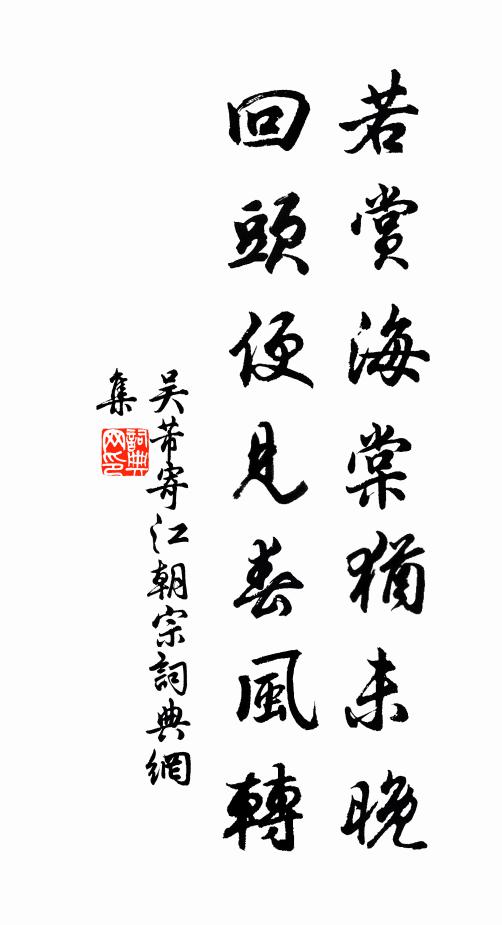 若賞海棠猶未晚
回頭便見春風轉
吴芾寄江朝宗詞典網
集
詞典
网印